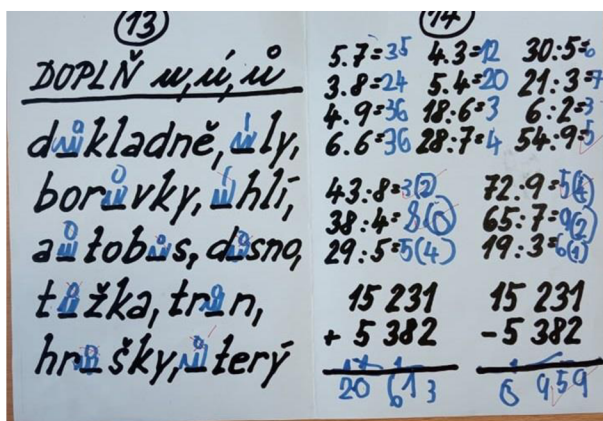 13
DOPLŇ u, ú, ů
důkladně, úly,
borůvky, úhlí,
aůtobůs, důsno,
tůžka, trůn,
hrůšky, ůterý
14
5.7=35 4.3=12 30:5=6
3.8=24 5.4=20 21:3=7
4.9=36 18:6=3 6:2=3
6.6=36 28:7=4 54:9=5
43:8=3(2) 72:9=
38:4= 65:7=9(2)
29:5=5(4) 19:3=6(1)
15 231 15 231
+ 5 382 - 5 382
20 613 959